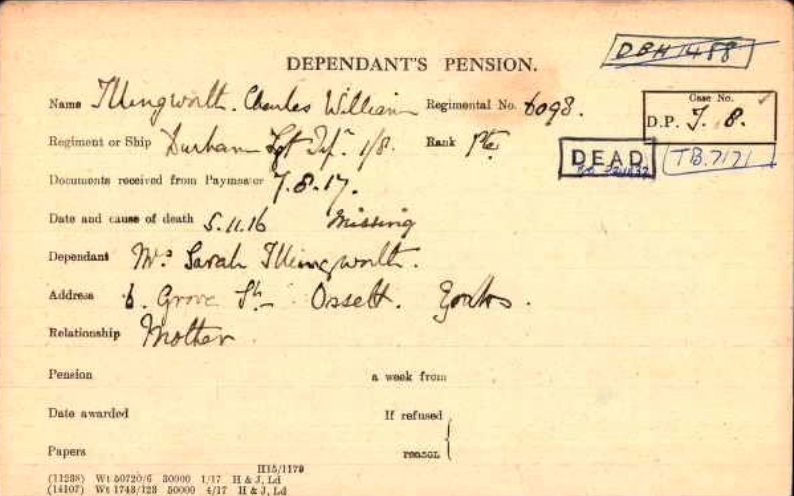 DBH 1488
DEPENDANT'S PENSION.
Name Illingworth. Charles William Regimental No. 6098.
Case No.
D.P. I. 8.
Regiment or Ship Durham Lgt Infy. 1/8. Rank Pte
DEAD
TB.7171
Documents received from Paymaster 7.8.17.
Date and cause of death 5.11.16 Missing
Dependant Mrs Sarah Illingworth.
Address 6. Grove St. Ossett. Yorks.
Relationship Mother
Pension a week from
Date awarded If refused
Papers reason
H15/1179
(11238) Wt 50720/6 30000 1/17 H & J, Ld
(14107) Wt 1743/123 50000 4/17 H & J, Ld